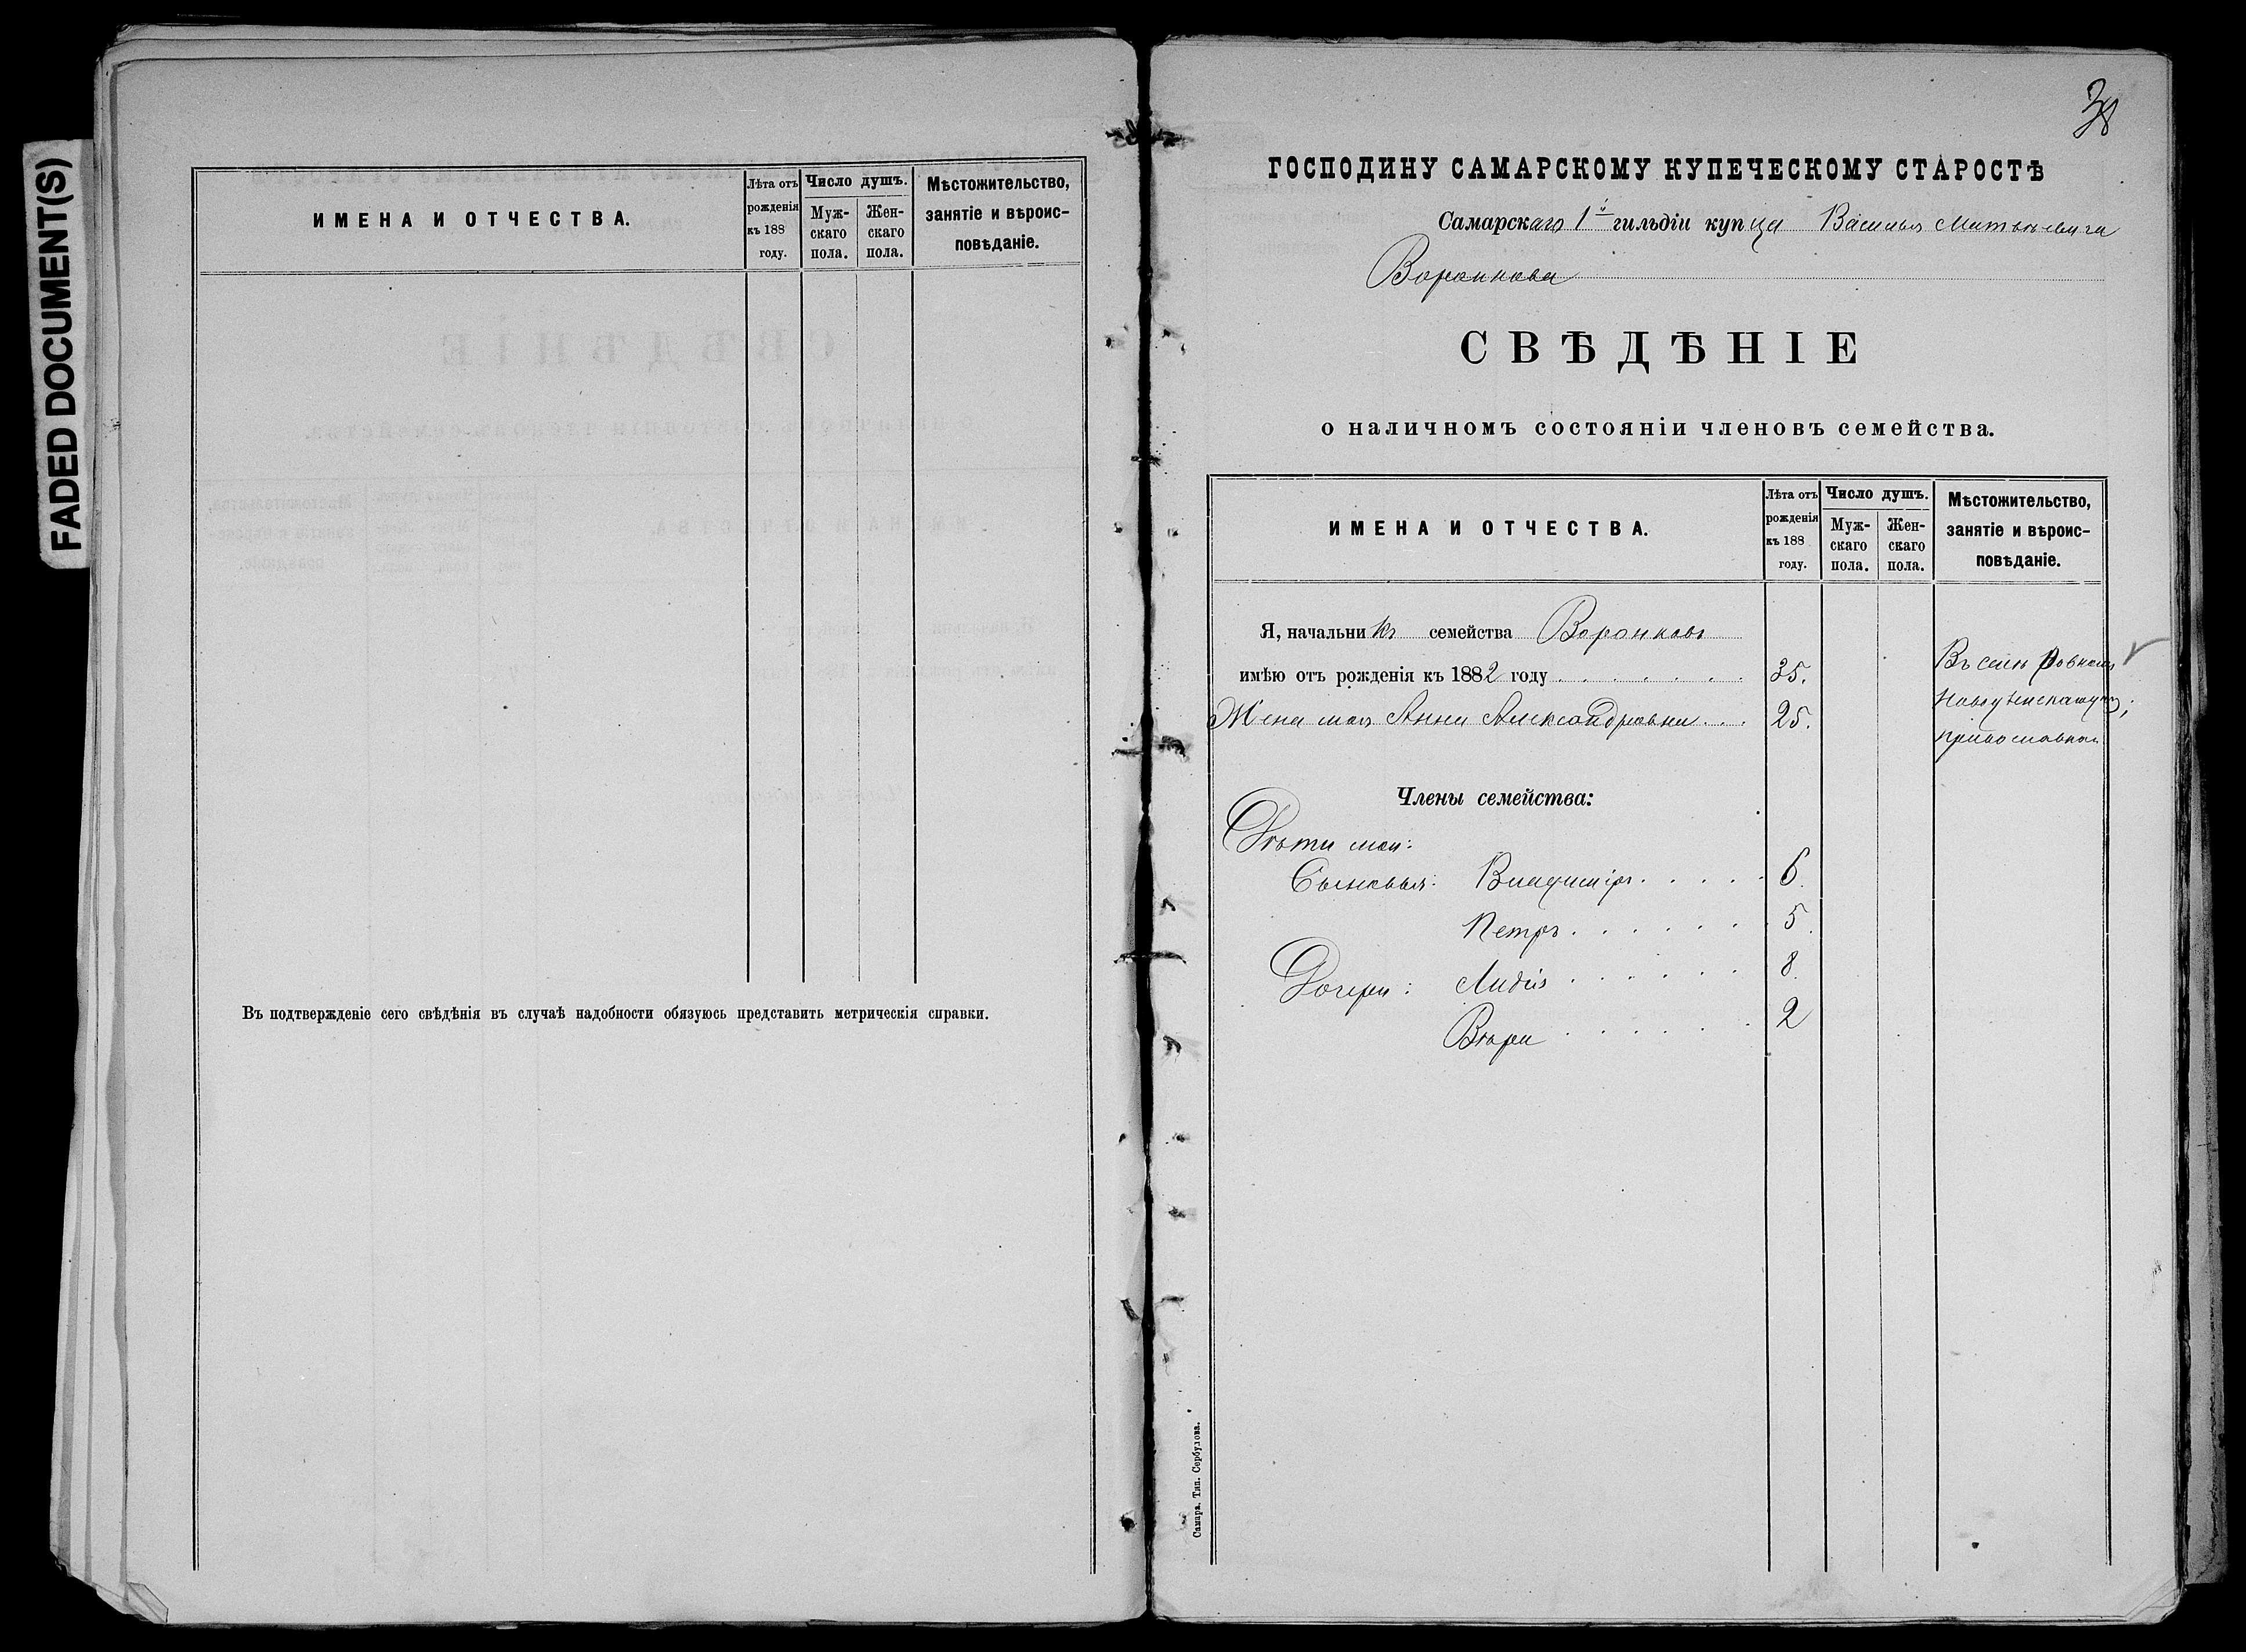 FADED DOCUMENT(S)
ИМЕНА И ОТЧЕСТВА.
Лѣта отъ рожденія къ 188 году.
Число душъ.
Мужскаго пола.
Женскаго пола.
Мѣстожительство, занятіе и вѣроисповѣданіе.
Въ подтвержденіе сего свѣдѣнія въ случаѣ надобности обязуюсь представить метрическія справки.
38
ГОСПОДИНУ САМАРСКОМУ КУПЕЧЕСКОМУ СТАРОСТѢ
Самарскаго 1й гильдіи купца Василья Матвѣевича
Воронкова
СВѢДѢНІЕ
о наличномъ состояніи членовъ семейства.
ИМЕНА И ОТЧЕСТВА.
Лѣта отъ рожденія къ 188 году.
Число душъ.
Мужскаго пола.
Женскаго пола.
Мѣстожительство, занятіе и вѣроисповѣданіе.
Я, начальникъ семейства Воронковъ
имѣю отъ рожденія къ 1882 году 35.
Жена моя Анна Александровна 25.
Въ селѣ Ровномъ
Новоузенскаго у;
православная
Члены семейства:
Дѣти мои:
Сыновья: Владиміръ 6.
Петръ 5.
Дочери: Лидія 8.
Вѣра 2
Самара. Тип. Сербулова.